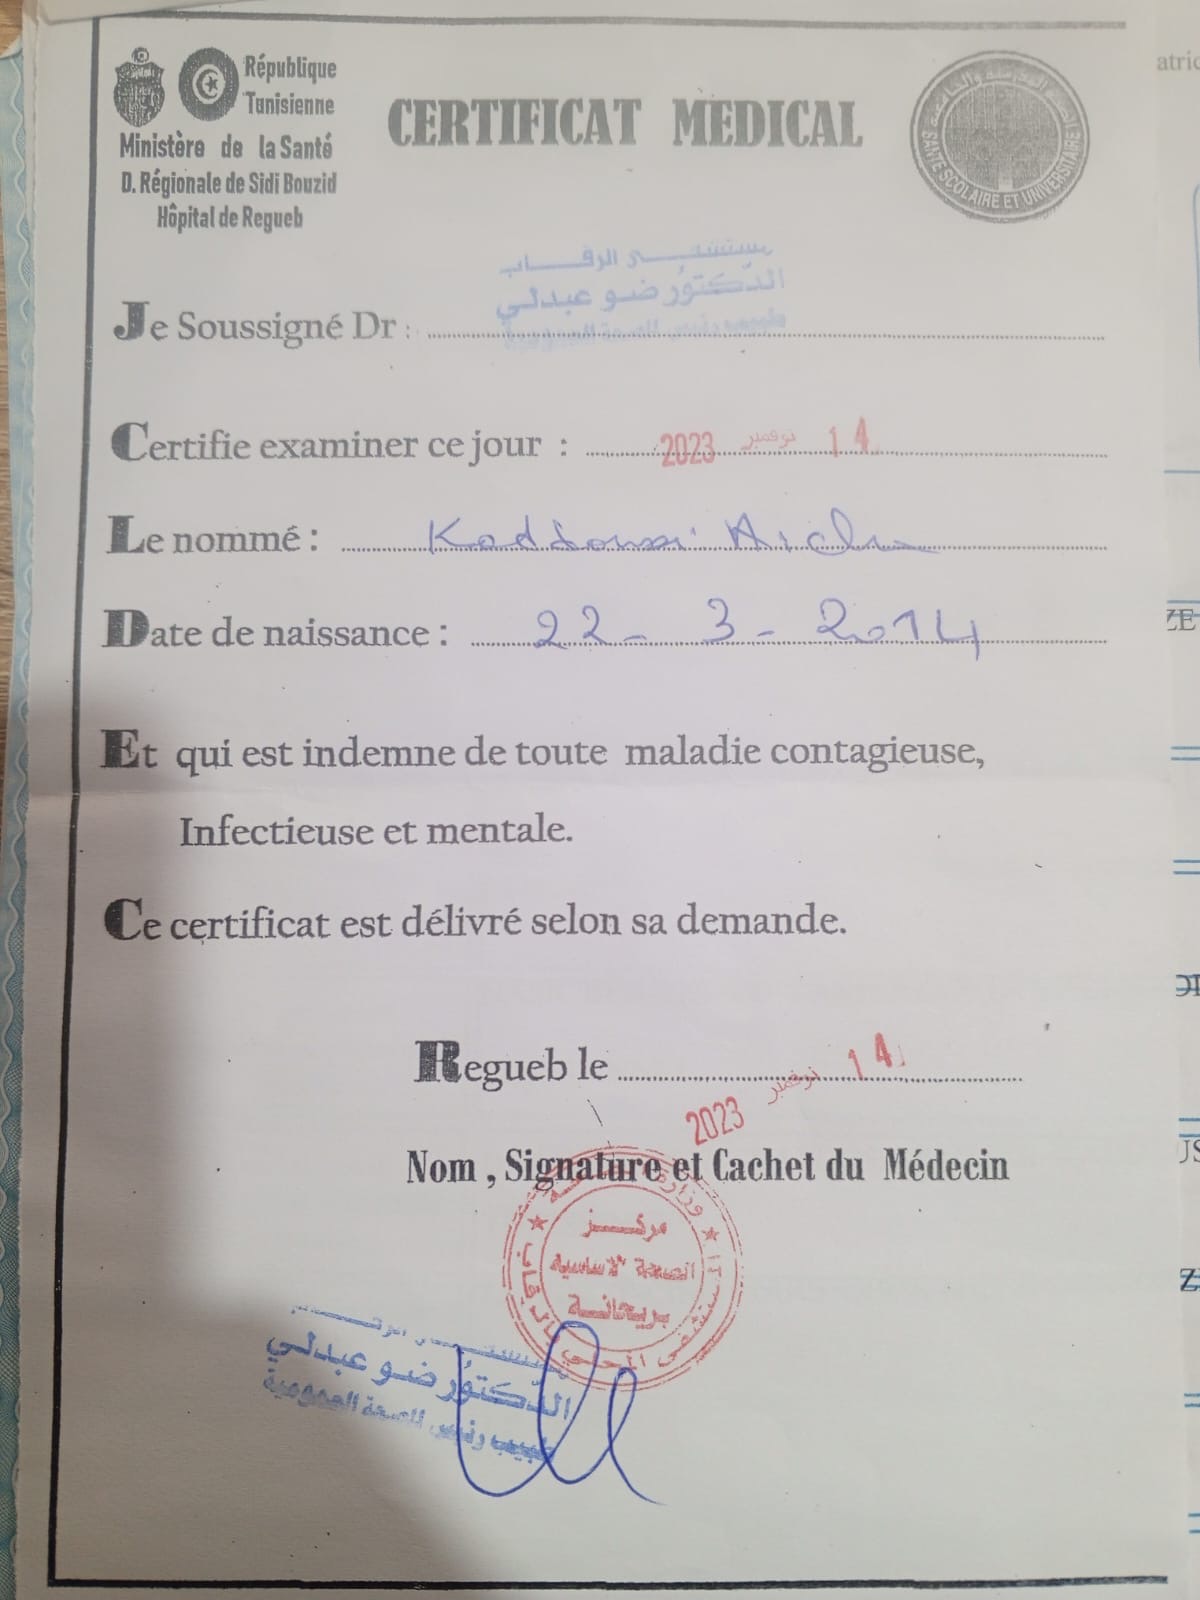 République
Tunisienne
Ministère de la Santé
D. Régionale de Sidi Bouzid
Hôpital de Regueb
CERTIFICAT MEDICAL
SANTÉ SCOLAIRE ET UNIVERSITAIRE
مستشفى الرقاب
الدكتور ضو عبدلي
Je Soussigné Dr :
Certifie examiner ce jour : 14 نوفمبر 2023
Le nommé : Kaddoussi
Date de naissance : 22 - 3 - 2014
Et qui est indemne de toute maladie contagieuse,
Infectieuse et mentale.
Ce certificat est délivré selon sa demande.
Regueb le 14 نوفمبر 2023
Nom , Signature et Cachet du Médecin
مركز
الصحة الاساسية
بريحانة
الدكتور ضو عبدلي
طبيب رئيس للصحة العمومية
atric
ZE
US